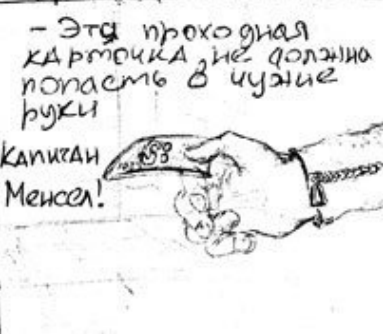 - Эта проходная
карточка, не должна
попасть в чужие
руки
Капитан
Менсел!